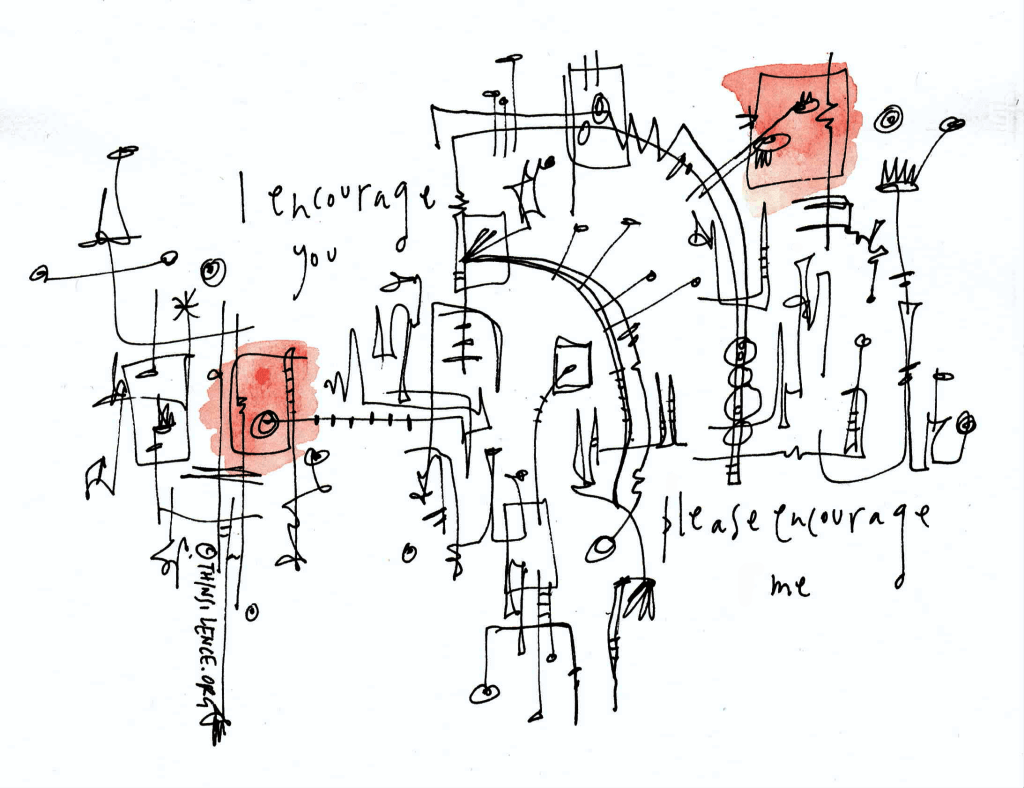 I encourage
you
please encourage
me
©THINSiLENCE.ORG